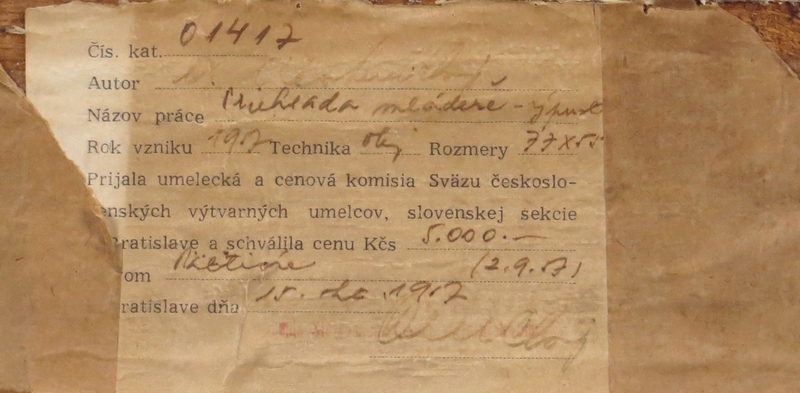 Čís. kat. 01417
Autor
Názov práce Priehrada mládeže - výpust
Rok vzniku 1957 Technika olej Rozmery 77x55
Prijala umelecká a cenová komisia Sväzu českoslo-
enských výtvarných umelcov, slovenskej sekcie
Bratislave a schválila cenu Kčs 5.000.-
om (2.9.57)
ratislave dňa 15. 1957